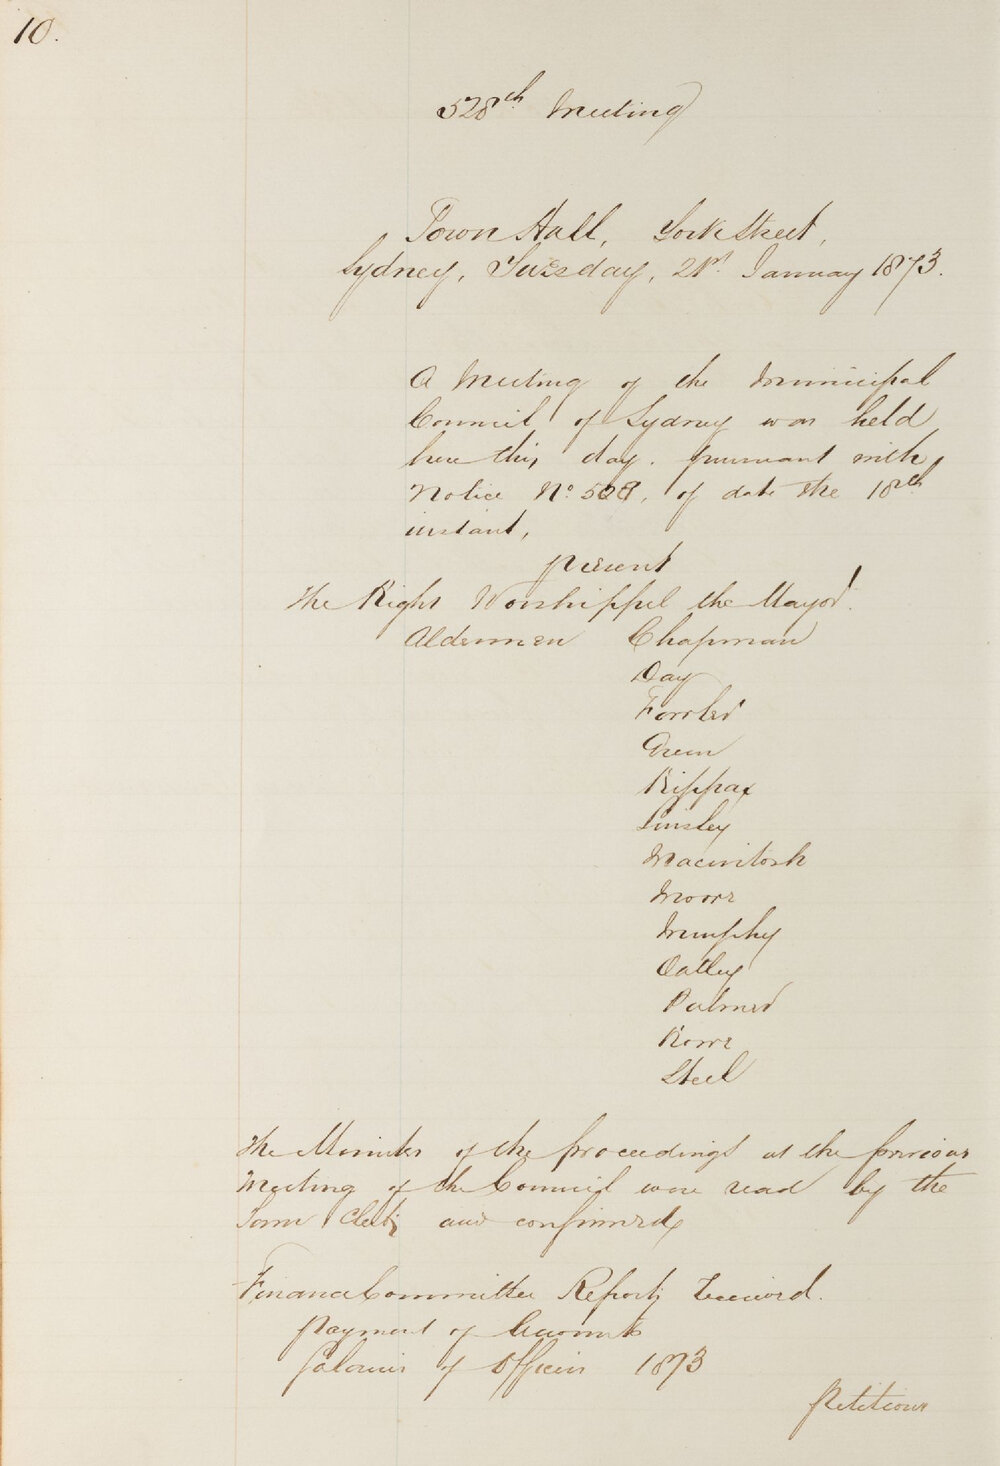 10.
528th Meeting
Town Hall, York Street,
Sydney, Tuesday, 21st January 1873.
A Meeting of the Municipal
Council of Sydney was held
here this day. pursuant with
Notice No. 528, of date the 18th
instant,
present
The Right Worshipful the Mayor.
Aldermen Chapman
Day
Fowler
Green
Kippax
Linsley
Macintosh
Moore
Murphy
Oatley
Palmer
Rowe
Steel
The Minutes of the proceedings at the previous
Meeting of the Council were read by the
Town Clerk and confirmed
Finance Committee Reports Received.
Payment of Accounts
Salaries of Officers 1873
Petitions